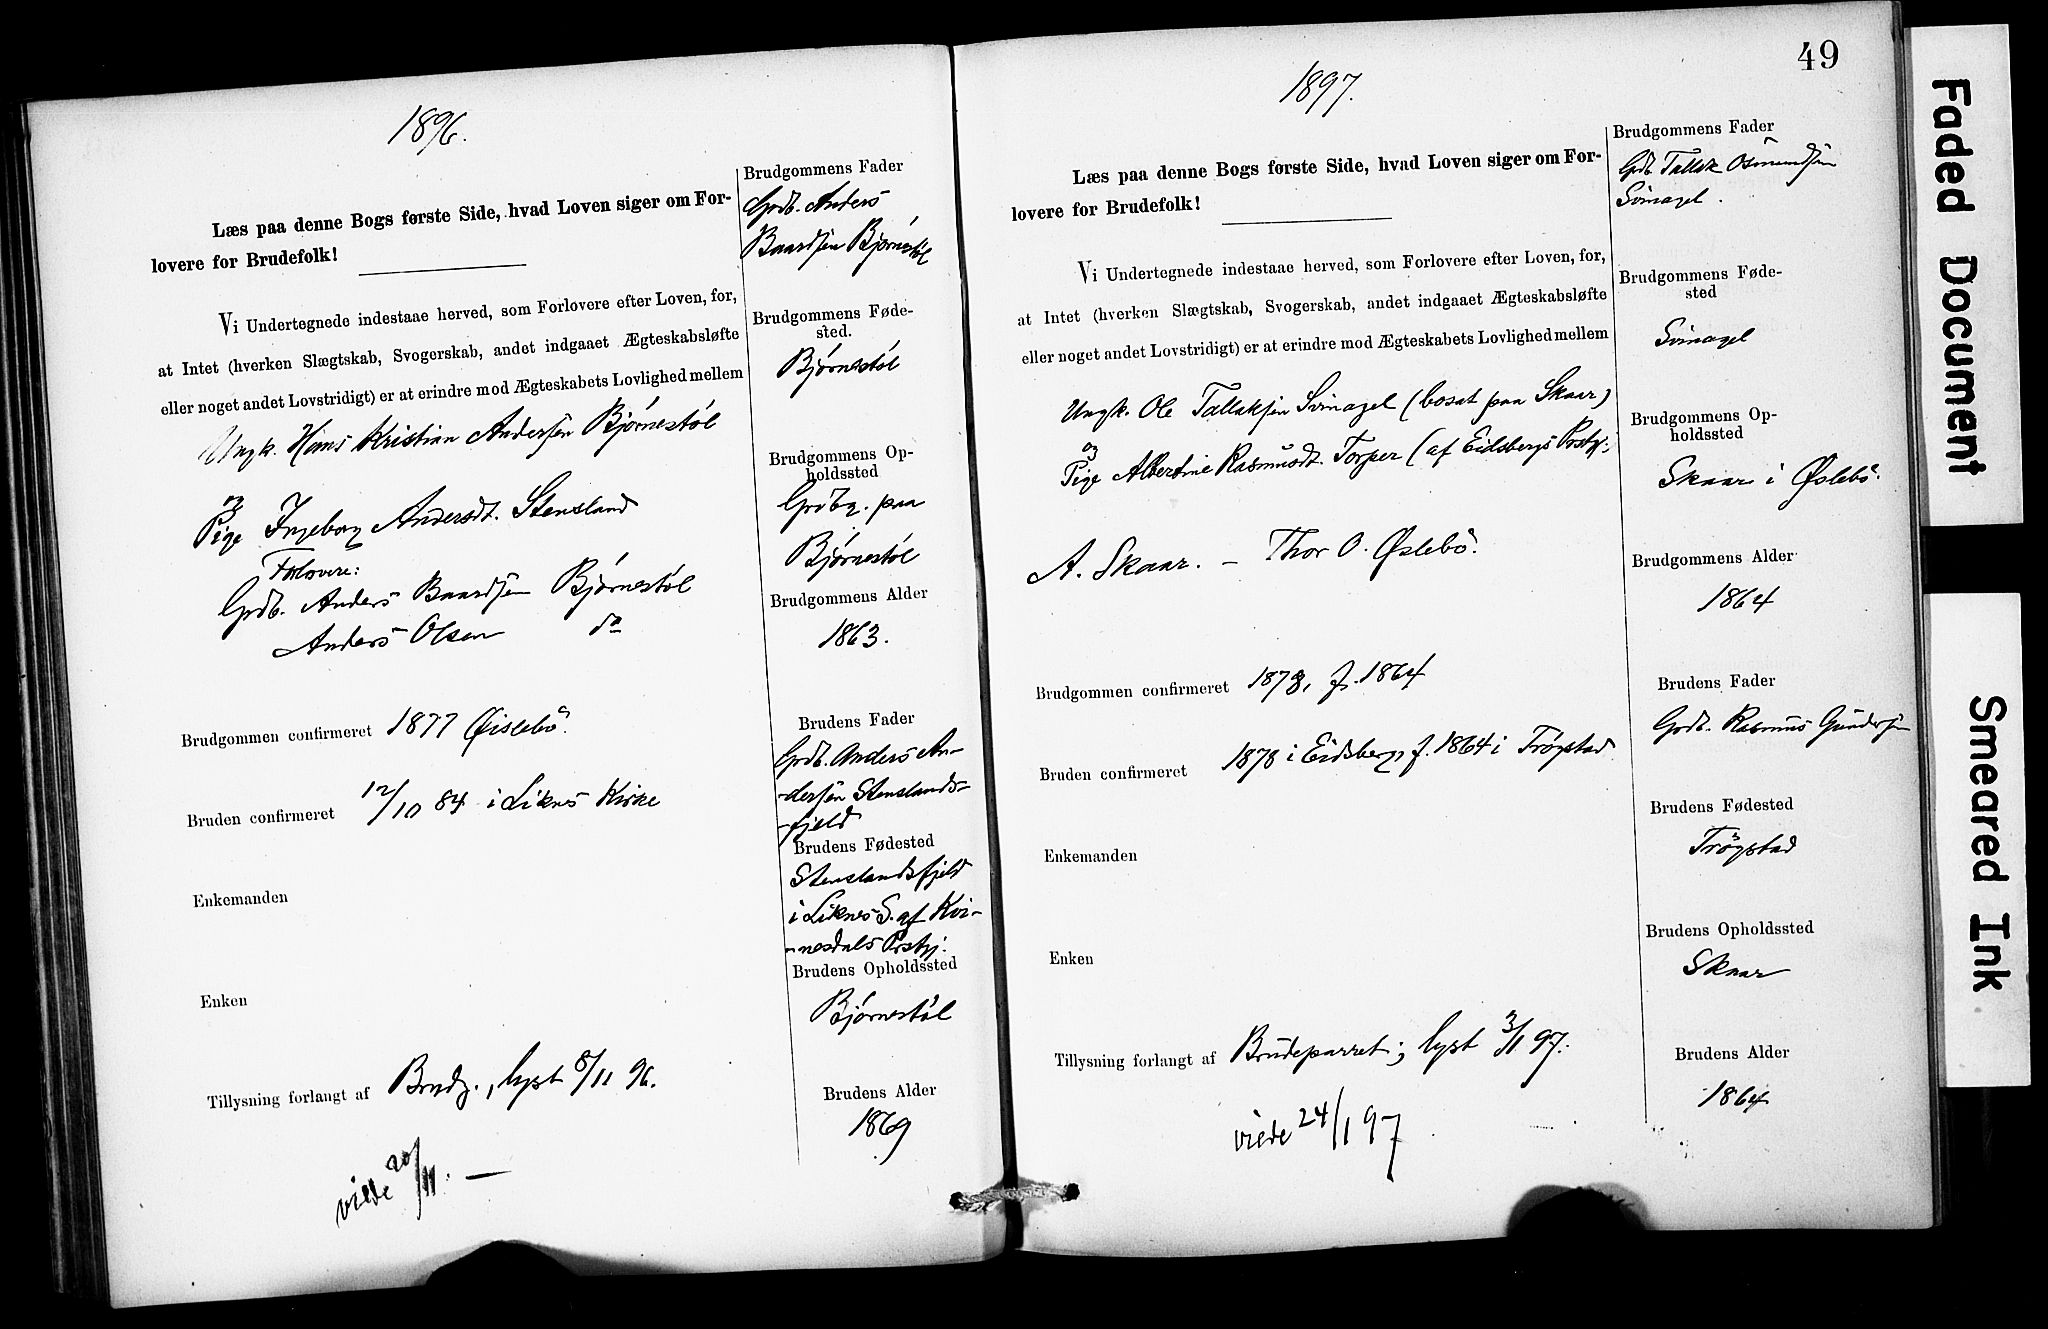 1896.
Læs paa denne Bogs første Side, hvad Loven siger om For-
lovere for Brudefolk!
Vi Undertegnede indestaae herved, som Forlovere efter Loven, for,
at Intet (hverken Slægtskab, Svogerskab, andet indgaaet Ægteskabsløfte
eller noget andet Lovstridigt) er at erindre mod Ægteskabets Lovlighed mellem
Ungk. Hans Kristian Andersen Bjørnestøl
og
Pige Ingeborg Andersdt. Stensland
Forlovere:
Grdb. Anders Baardsen Bjørnestøl
Anders Olsen do
Brudgommen confirmeret 1877 Øislebö.
Bruden confirmeret 12/10 84 i Liknes Kirke
Enkemanden
Enken
Tillysning forlangt af Brudg., lyst 8/11 96.
viede 20/11. —
Brudgommens Fader
Grdb. Anders
Baardsen Bjørnestøl
Brudgommens Føde-
sted.
Bjørnestøl
Brudgommens Op-
holdssted
Grdbr. paa
Bjørnestøl
Brudgommens Alder
1863.
Brudens Fader
Grdb. Anders An-
-dersen Stenslands-
-fjeld
Brudens Fødested
Stenslandsfjeld
i Liknes S. af Kvi-
-nesdals Prstgj.
Brudens Opholdssted
Bjørnestøl
Brudens Alder
1869
49
1897.
Læs paa denne Bogs første Side, hvad Loven siger om For-
lovere for Brudefolk!
Vi Undertegnede indestaae herved, som Forlovere efter Loven, for,
at Intet (hverken Slægtskab, Svogerskab, andet indgaaet Ægteskabsløfte
eller noget andet Lovstridigt) er at erindre mod Ægteskabets Lovlighed mellem
Ungk. Ole Tallaksen Svinagel (bosat paa Skaar)
og
Pige Albertine Rasmusdt. Torper (af Eidsbergs Prstgj.
A. Skaar. – Thor O. Øslebö.
Brudgommen confirmeret 1878, f. 1864
Bruden confirmeret 1878 i Eidsberg, f. 1864 i Trögstad
Enkemanden
Enken
Tillysning forlangt af Brudeparret; lyst 3/1 97.
viede 24/1 97
Brudgommens Fader
Grdb. Tallak Osmundsen
Svinagel.
Brudgommens Føde-
sted
Svinagel
Brudgommens Op-
holdssted
Skaar i Øslebö.
Brudgommens Alder
1864
Brudens Fader
Grdb. Rasmus Gundersen
Brudens Fødested
Trögstad
Brudens Opholdssted
Skaar
Brudens Alder
1864
Faded Document
Smeared Ink